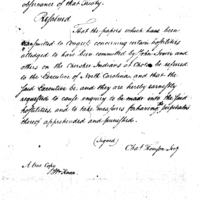 observance of that Treaty.
Resolved
That the papers which have been
transmitted to Congress concerning certain hostilities
alledged to have been committed by John Sevier and
others on the Cherokee Indians at be referred
to the Executive of North Carolina, and that the
said Executive be, and they are hereby earnestly
requested to cause enquiry to be made into the said
hostilities, and to take measures for having the perpetrators
thereof apprehended and punished.
(Signed)
Chas Thomson Secy
A True Copy